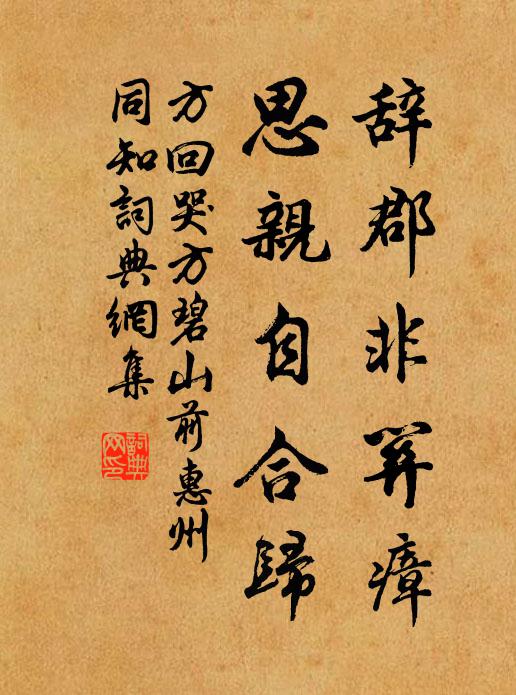 辞郡非瘴
思親自合歸
方回哭方碧山前惠州
同知詞典網集
詞典
网印